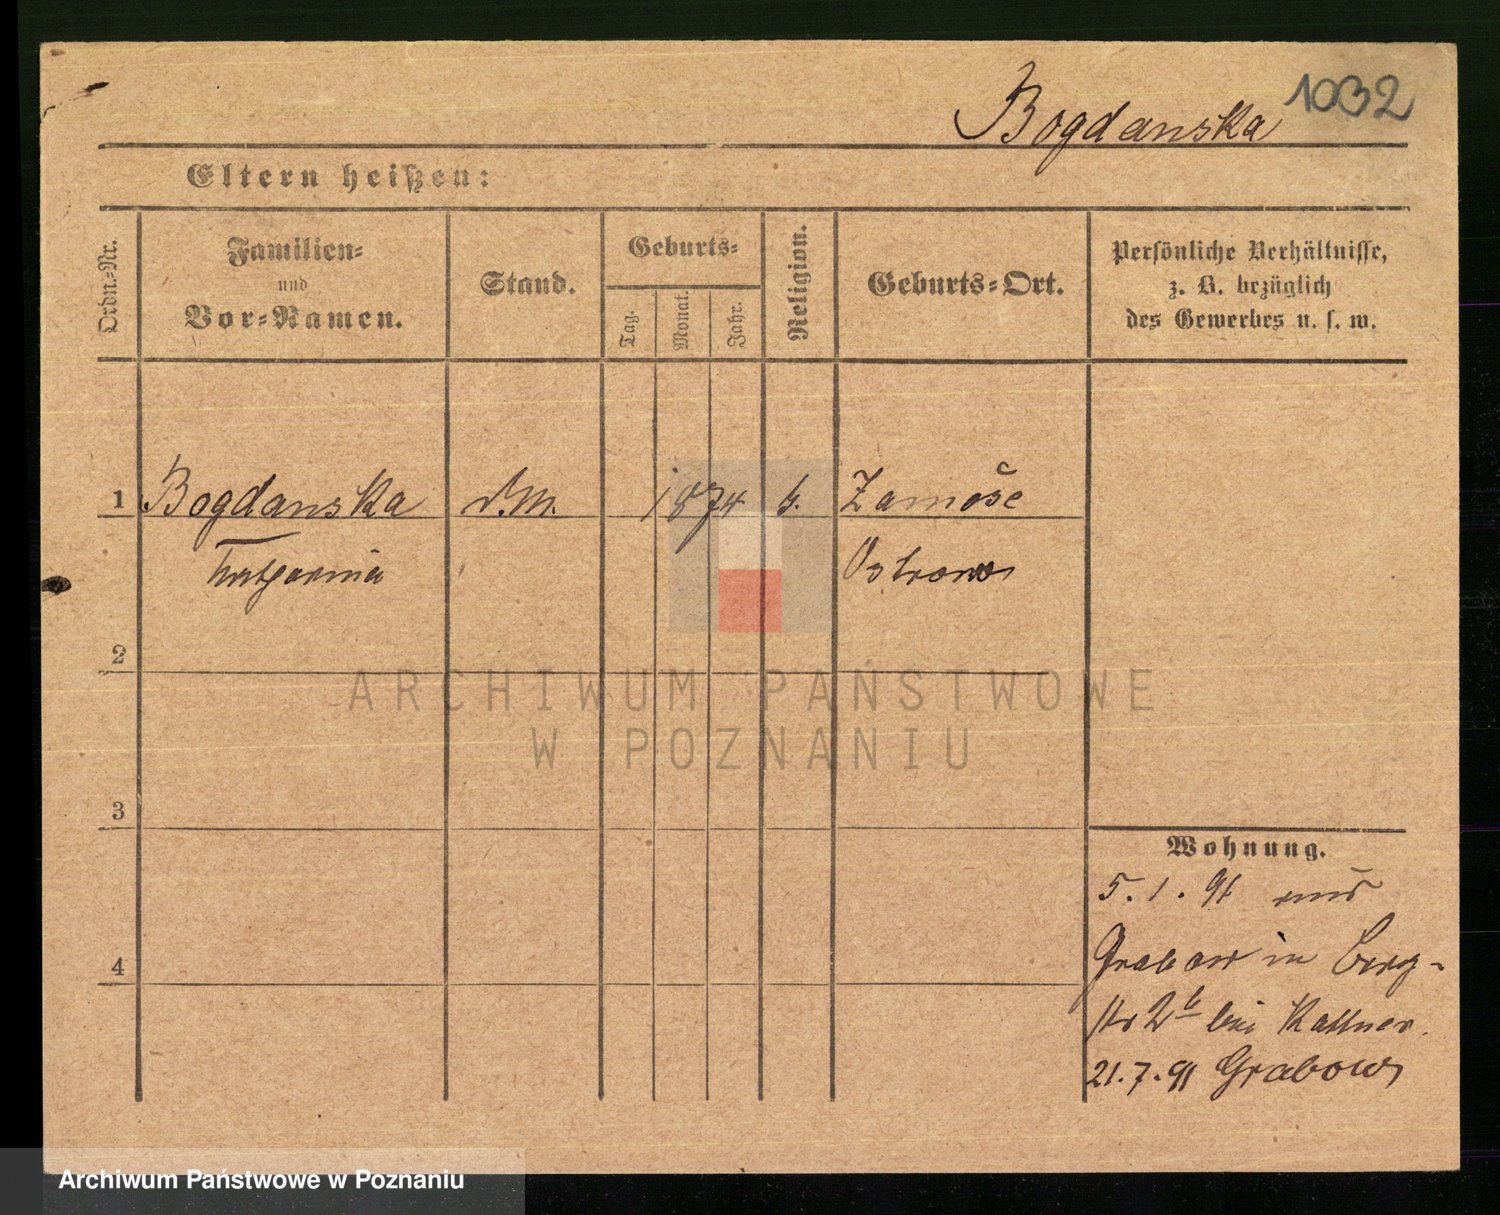 Bogdanska 1032
Eltern heißen:
Ordn.-Nr.
Familien-
und
Vor-Namen.
Stand.
Geburts-
Tag.
Monat.
Jahr.
Religion.
Geburts-Ort.
Persönliche Verhältnisse,
z. B. bezüglich
des Gewerbes u. s. w.
1 Bogdanska d. M. 1874 k. Zamośc
Ostrowo
2
3
4
Wohnung.
5. 1. 91 aus
Grabow in Berg-
str 2b bei Kattner.
21.7.91 Grabow
ARCHIWUM PAŃSTWOWE
W POZNANIU
Archiwum Państwowe w Poznaniu